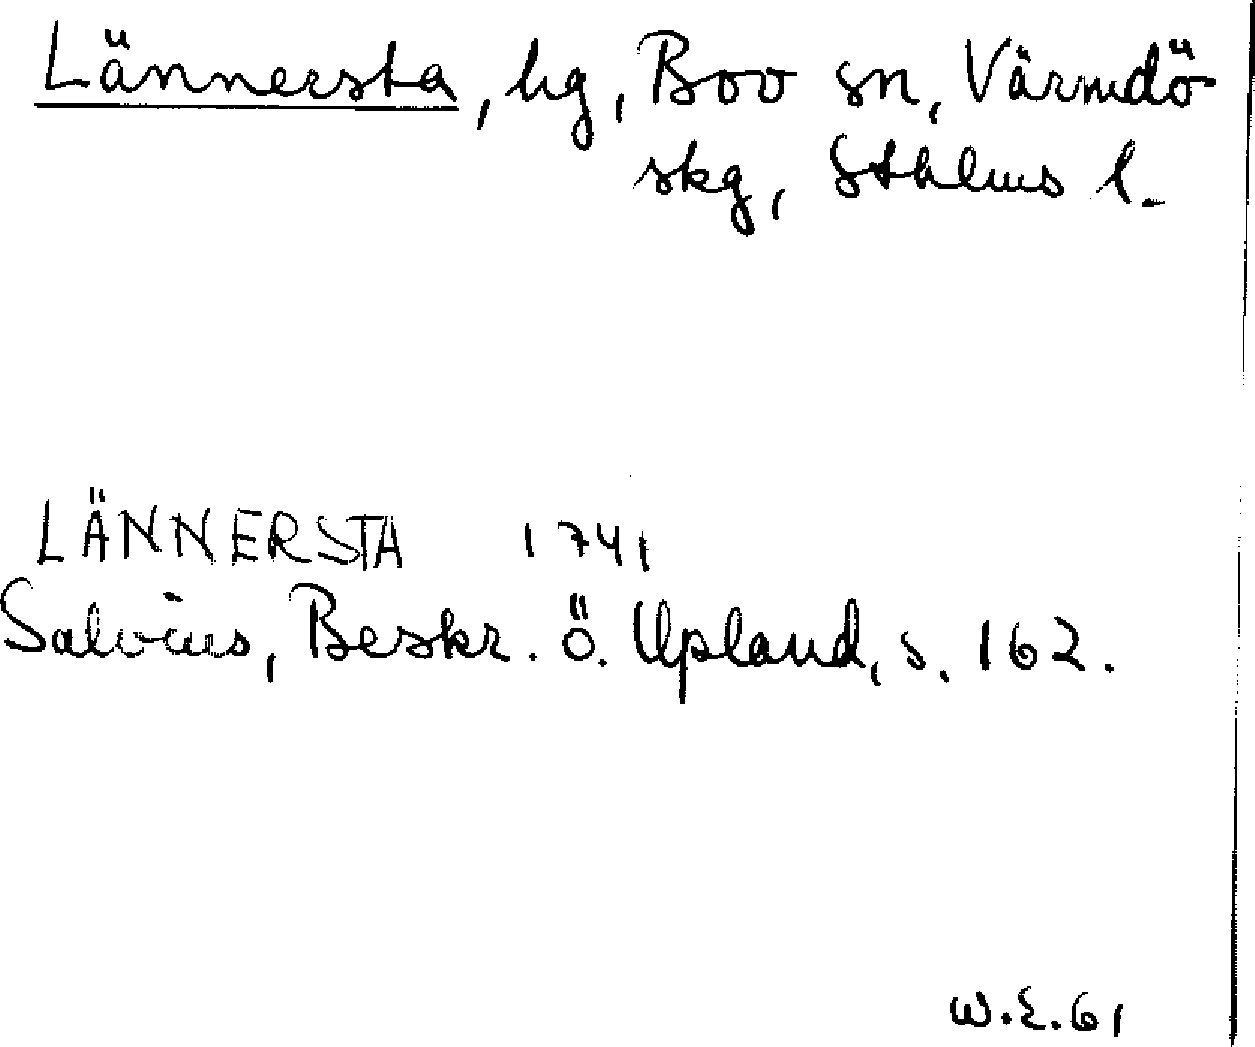 Lännersta, hg, Boo sn, Värmdö
skg, Sthlms l.
LÄNNERSTA 1741
Salvius, Beskr. ö. Upland, s. 162.
W.E.61